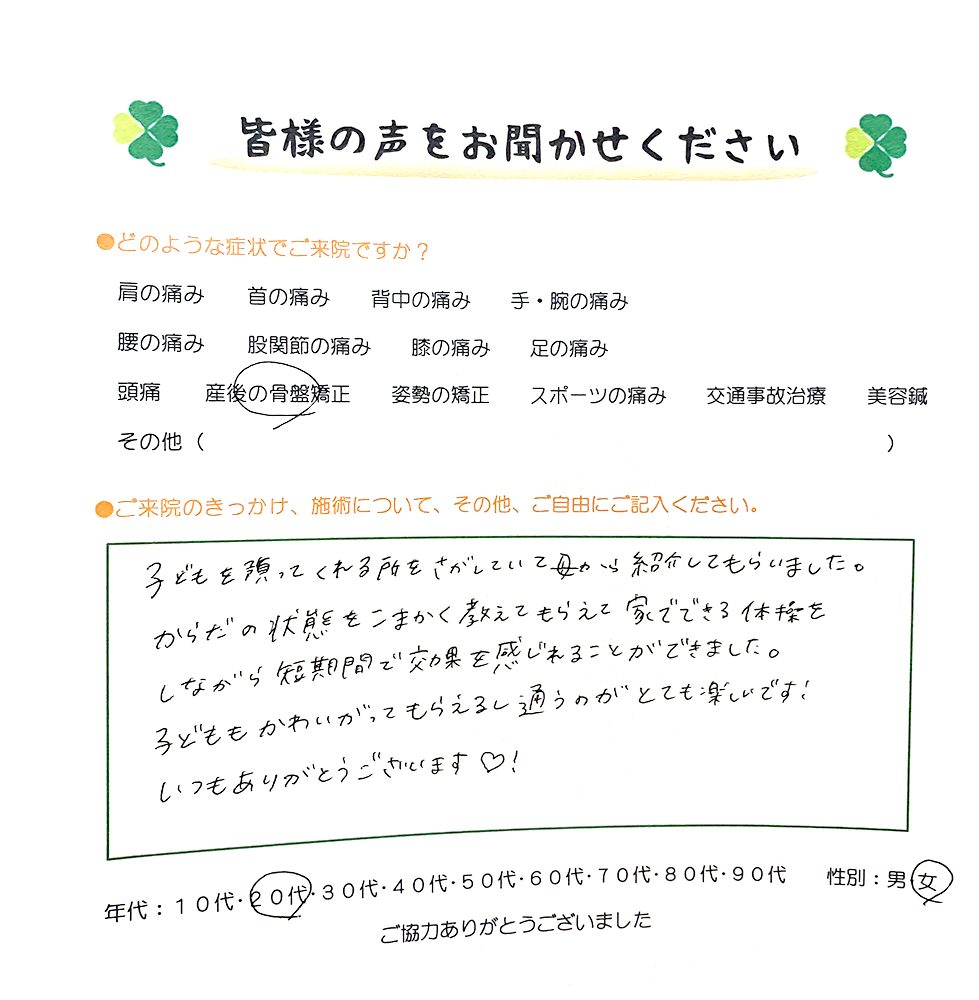 皆様の声をお聞かせください
●どのような症状でご来院ですか？
肩の痛み 首の痛み 背中の痛み 手・腕の痛み
腰の痛み 股関節の痛み 膝の痛み 足の痛み
頭痛 産後の骨盤矯正 姿勢の矯正 スポーツの痛み 交通事故治療 美容鍼
その他（ ）
●ご来院のきっかけ、施術について、その他、ご自由にご記入ください。
子どもを預ってくれる所をさがしていて母から紹介してもらいました。
からだの状態をこまかく教えてもらえて家でできる体操を
しながら短期間で効果を感じれることができました。
子どももかわいがってもらえるし通うのがとても楽しいです!
いつもありがとうございます♡!
年代：１０代・２０代・３０代・４０代・５０代・６０代・７０代・８０代・９０代 性別：男・女
ご協力ありがとうございました